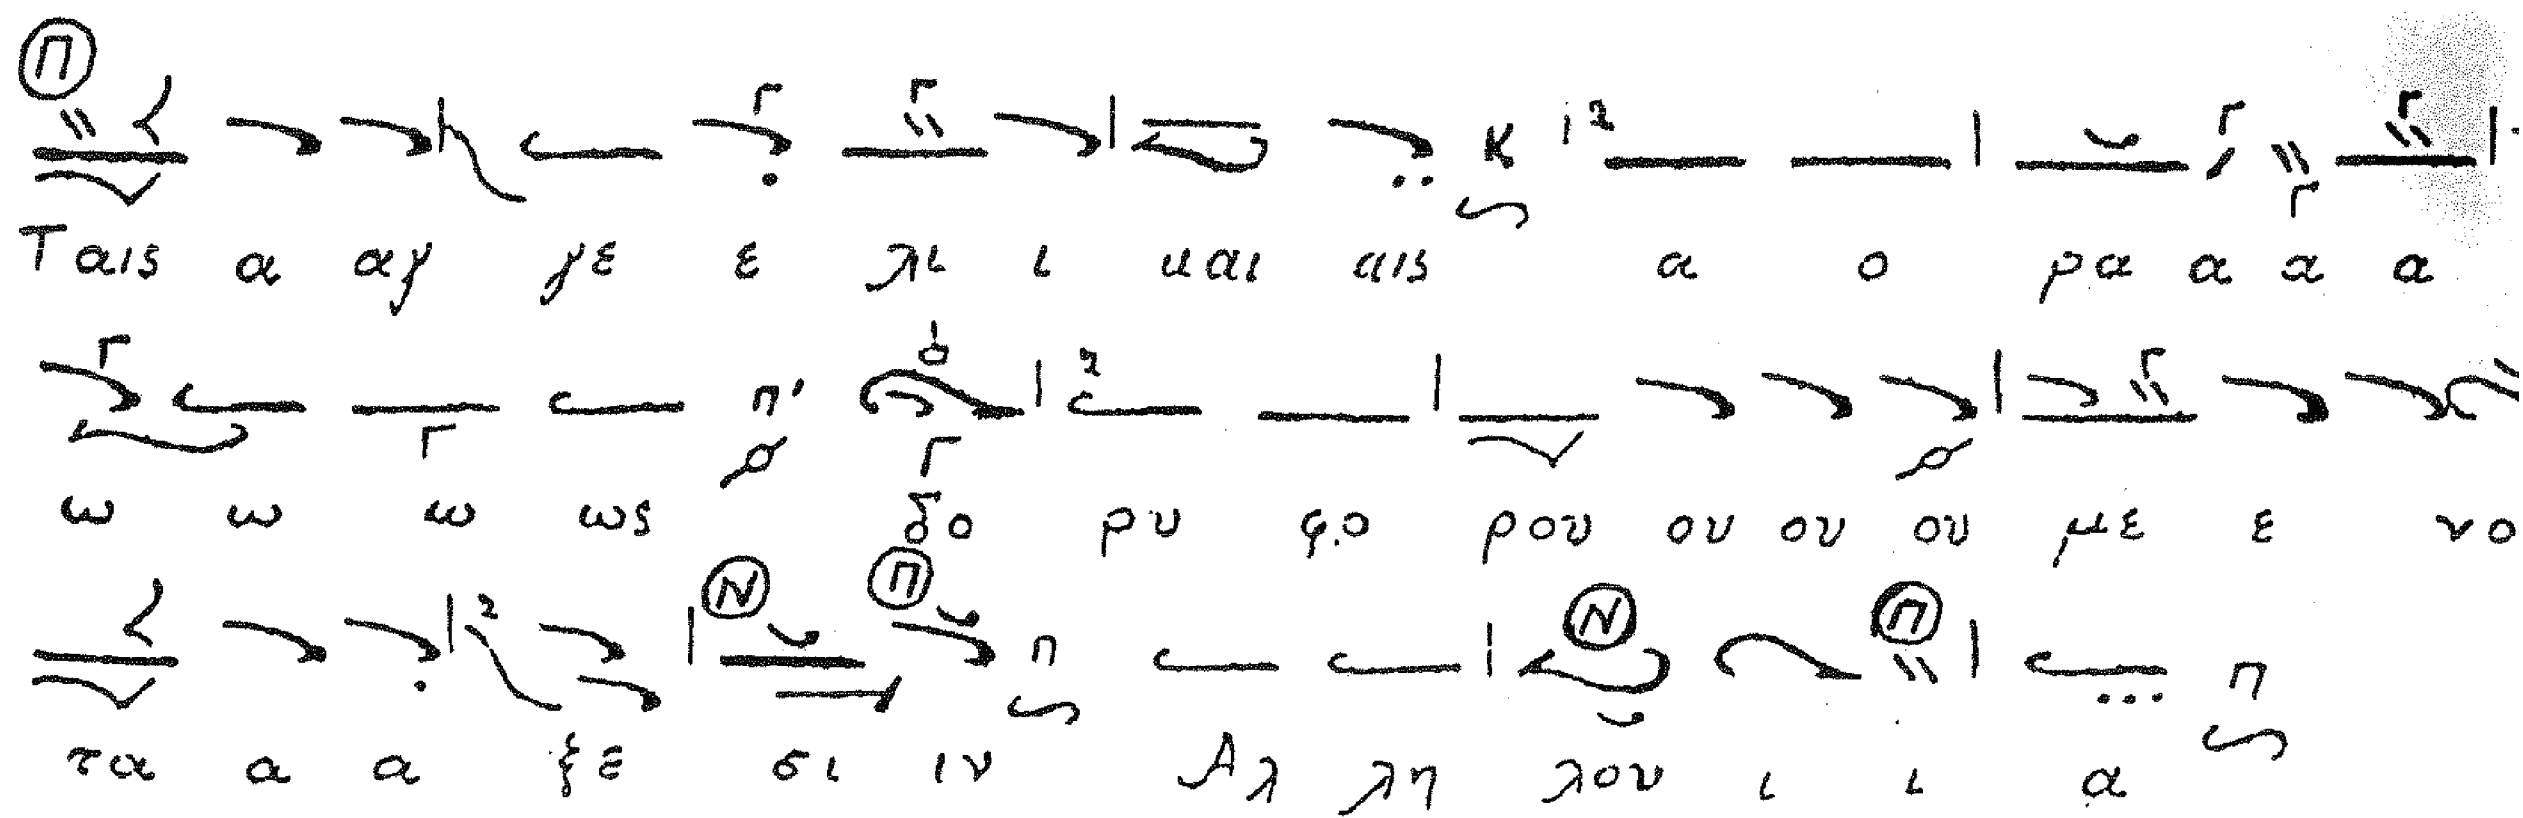 Ταις α αγ γε ε λι ι και αις α ο ρα α α α
ω ω ω ως δο ρυ φο ρου ου ου ου με ε νο
τα α α ξε σι ιν Αλ λη λου ι ι α